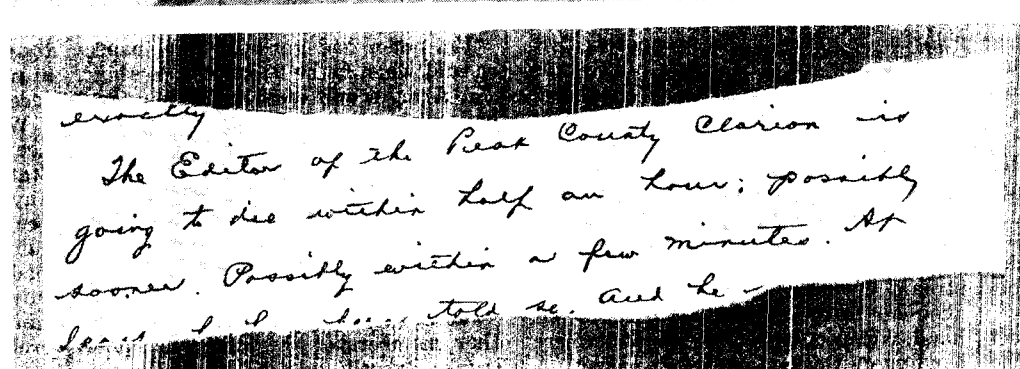 exactly
The Editor of the Peak County Clarion is
going to die within half an hour; possibly
sooner. Possibly within a few minutes. At
told so. And he